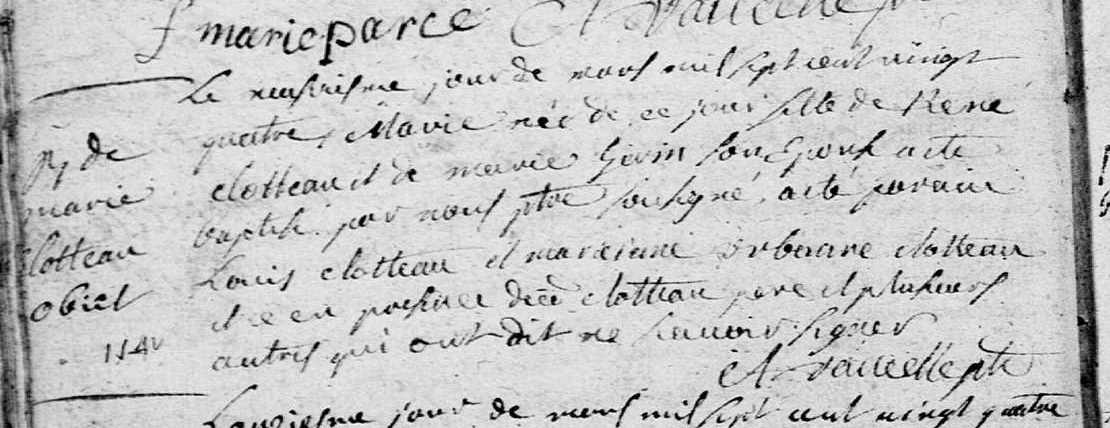 f marie parée A Vaucelle ptre
Le neufvisme jour de mars mil sept cent vingt
quattre, Marie née de ce jour fille de René
clotteau et de marie son Epouse a été
baptisé par nous ptre soussigné, a été parain
Louis clotteau et maraine urbanne clotteau
et ce en presence dud clotteau pere et plusieurs
autres qui ont dit ne scavoir signer
A Vaucelle ptre
B de
marie
clotteau
obiet
L'onziesme jour de mars mil sept cent vingt quattre